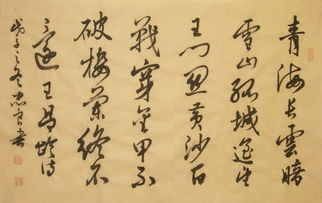 青海長雲暗
雪山孤城遙望
玉門關黃沙百
戰穿金甲不
破樓蘭終不
還 王昌齡詩
戊子之冬忠書